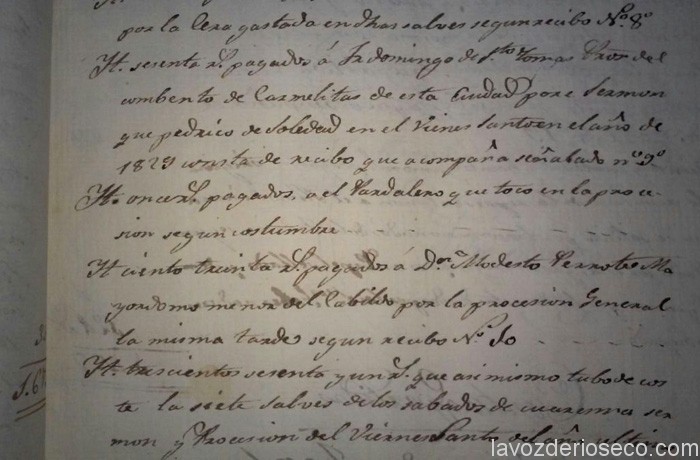 por la Cera gastada en dhas salves segun recibo Nº 8º
It. sesenta rs. pagados á Fr domingo de Sto Tomas Prior del
combento de Carmelitas de esta Ciudad por e Sermon
que pedrico de Soledad en el Viernes Santo en el año de
1829 consta de recibo que acompaña señalado nº 9º
It. once rs. pagados, a el Pardalero que toco en la proce-
sion segun costumbre
It ciento treinta rs. pagados á Dn. Modesto Perrote Ma
yordomo menor del Cabildo por la procesion General
la misma tarde segun recibo Nº 10
It. trescientos sesenta y un rs. que asimismo tubo de cos
te la siete salves de los sabados de cuaresma ser
mon y Procesion del Viernes Santo del año
lavozderioseco.com